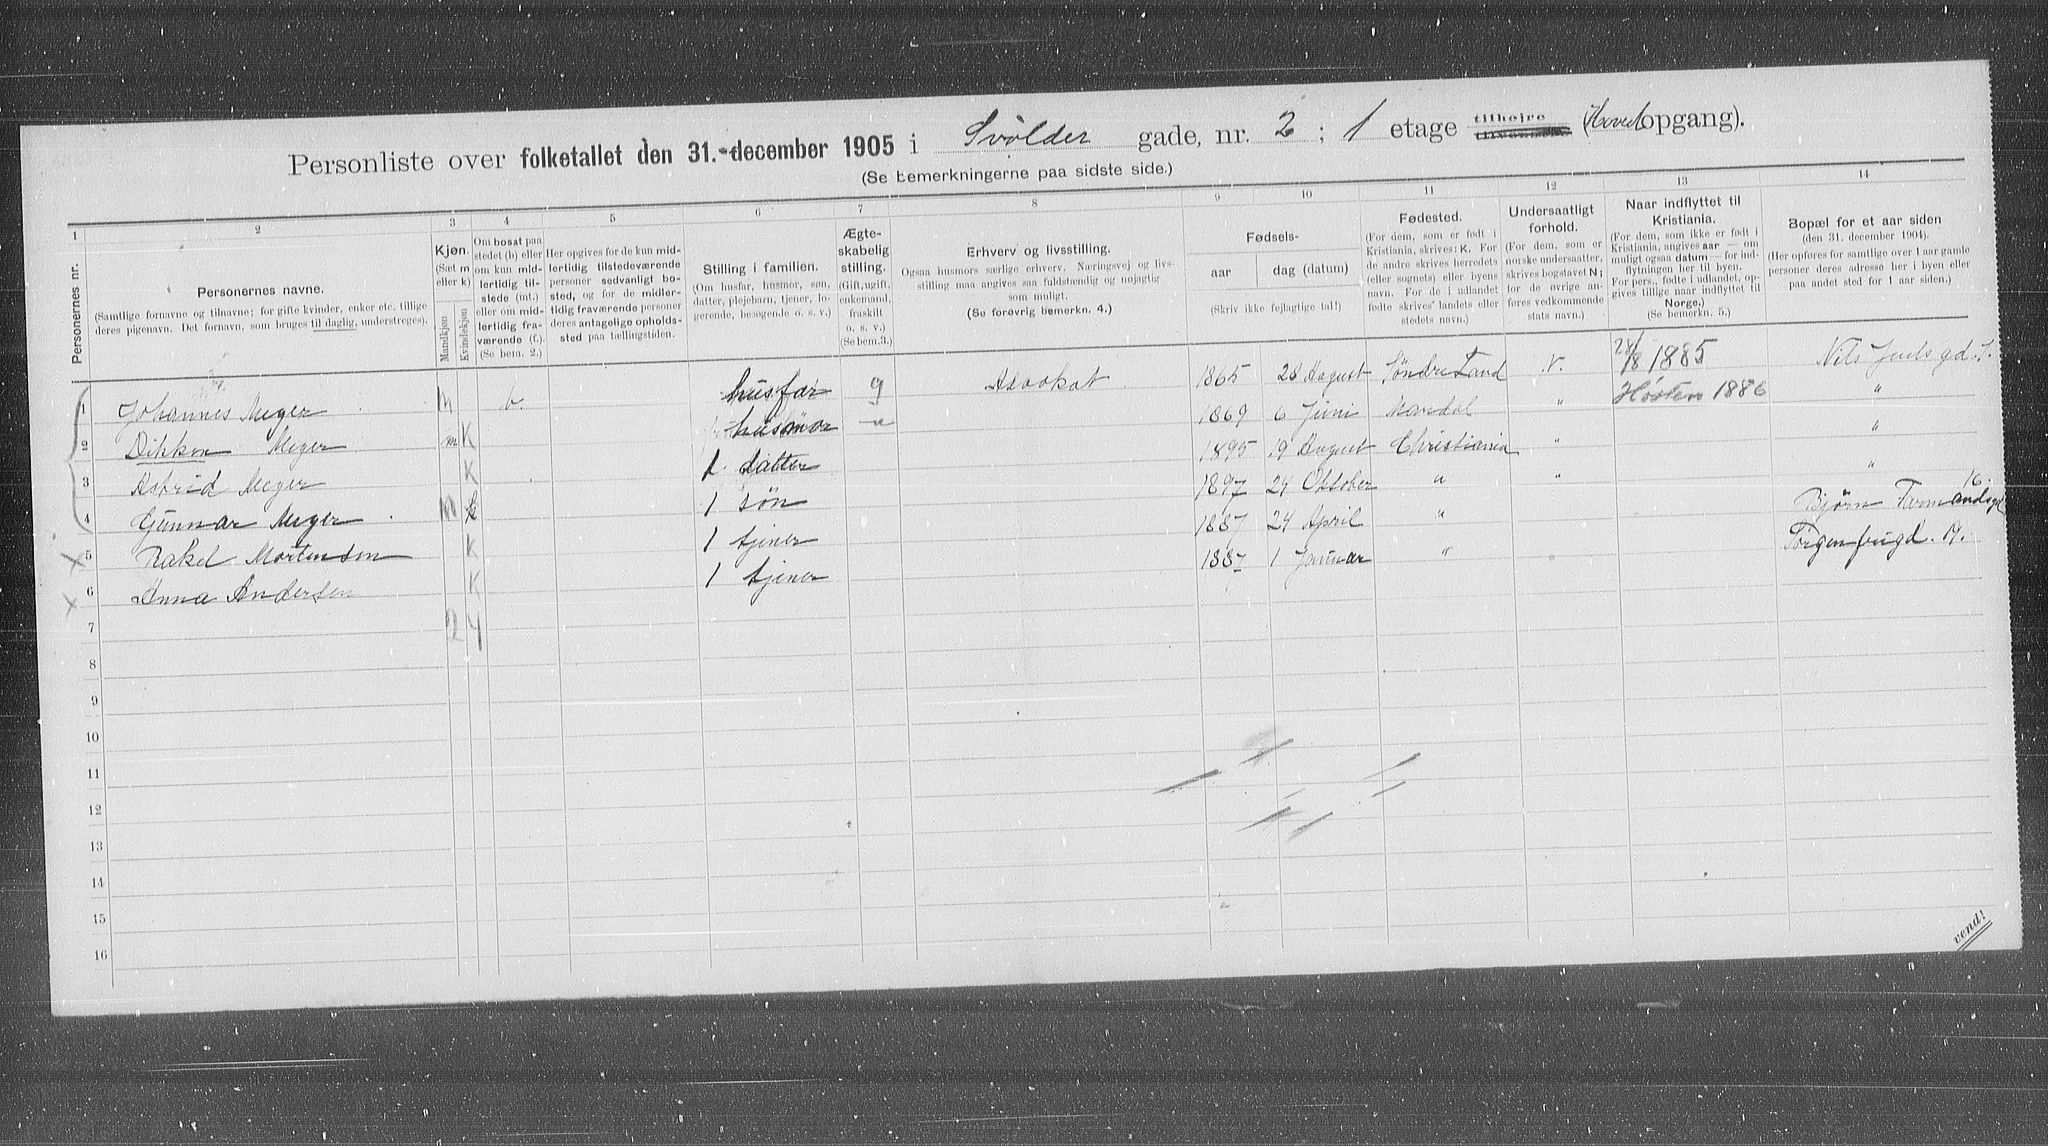 Personliste over folketallet den 31. december 1905 i Svolder gade, nr. 2 ; 1 etage tilhøjre (Hovedopgang).
(Se bemerkningerne paa sidste side.)
1 2 3 4 5 6 7 8 9 10 11 12 13 14
Personernes nr.
Personernes navne.
(Samtlige fornavne og tilnavne; for gifte kvinder, enker etc. tillige deres pigenavn. Det fornavn, som bruges til daglig, understreges).
Kjøn.
(Sæt m eller k)
Mandkjøn
Kvindekjøn
Om bosat paa stedet (b) eller om kun midlertidig tilstede (mt.) eller om midlertidig fraværende (f.). (Se bem. 2.)
Her opgives for de kun midlertidig tilstedeværende personer sedvanligt bosted, og for de midlertidig fraværende personer deres antagelige opholdssted paa tællingstiden.
Stilling i familien.
(Om husfar, husmor, søn, datter, plejebarn, tjener, logerende, besøgende o. s. v.)
Ægteskabelig stilling.
(Gift, ugift, enkemand, fraskilt o. s. v.)
(Se bem. 3.)
Erhverv og livsstilling.
Ogsaa husmors særlige erhverv. Næringsvej og livsstilling maa angives saa fuldstændig og nøjagtig som muligt.
(Se forøvrig bemerkn. 4.)
Fødsels-
aar
dag (datum)
(Skriv ikke fejlagtige tal!)
Fødested.
(For dem, som er født i Kristiania, skrives: K. For de andre skrives herredets (eller sognets) eller byens navn. For de i udlandet fødte skrives landets eller stedets navn.)
Undersaatligt forhold.
(For dem, som er norske undersaatter, skrives bogstavet N; for de øvrige anføres vedkommende stats navn.)
Naar indflyttet til Kristiania.
(For dem, som ikke er født i Kristiania, angives aar — om muligt ogsaa datum — for indflytningen her til byen. For pers., fødte i udlandet, opgives tillige naar indflyttet til Norge.)
(Se bemerkn. 5.)
Bopæl for et aar siden
(den 31. december 1904).
(Her opføres for samtlige over 1 aar gamle personer deres adresse her i byen eller paa andet sted for 1 aar siden.)
1 Johannes Meyer m b. husfar g Advokat 1865 28 August Søndre Land N. 28/8 1885 Nils Juels gd.
2 Dikken Meyer K husmor " 1869 6 Juni Mandal " Høsten 1886 "
3 Astrid Meyer K datter 1895 19 August Christiania " "
4 Gunnar Meyer m 1 søn 1897 24 Oktober " " "
5 Rakel Mortensen K 1 tjener 1887 24 April " Bjørn 16
6 Anna Andersen K 1 tjener 1887 1 Januar " "
7 2 4
8
9
10
11
12
13
14
15
16
vend!